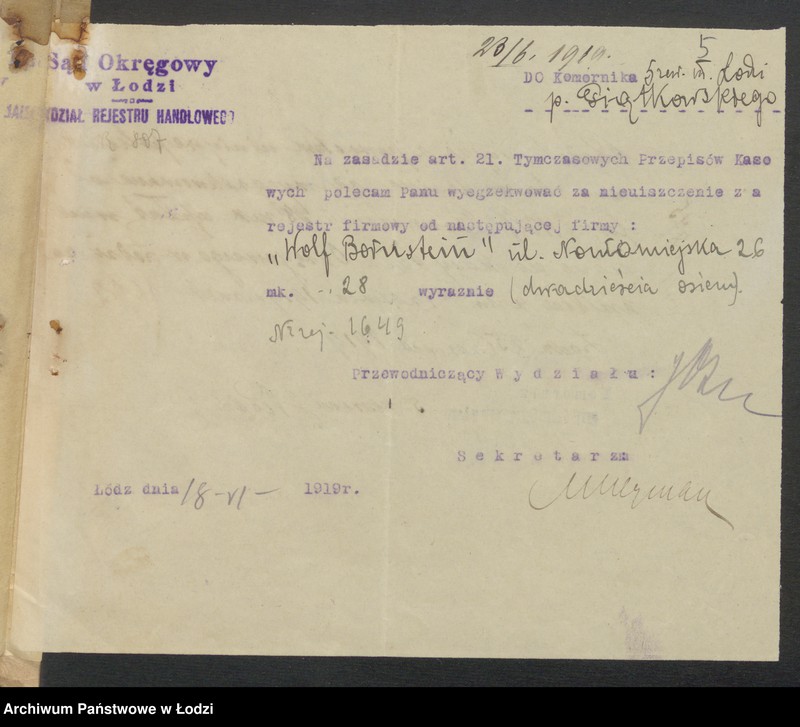 23/6. 1919.
5
Sąd Okręgowy
w Łodzi
DZIAŁ REJESTRU HANDLOWEGO
887
DO Komornika 5 rew. m. Łodzi
p. Piątkowskiego
Na zasadzie art. 21. Tymczasowych Przepisów Kaso
wych polecam Panu wyegzekwować za nieuiszczenie z a
rejestr firmowy od następującej firmy :
„Wolf Bornstein" ul. Nowomiejska 26
mk. 28 wyraznie (dwadzieścia osiem).
Nr rej. 1649
Przewodniczący W y d z i a ł u :
S e k r e t a r z
Łódz dnia 18-VI- 1919r.
Archiwum Państwowe w Łodzi